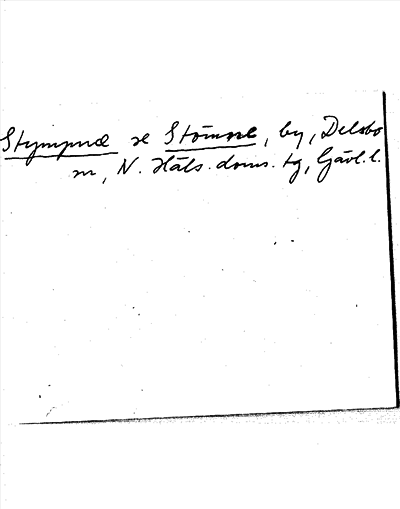 Stympnæ se Stömne, by, Delsbo
sn, N. Häls. doms. tg, Gävl. l.